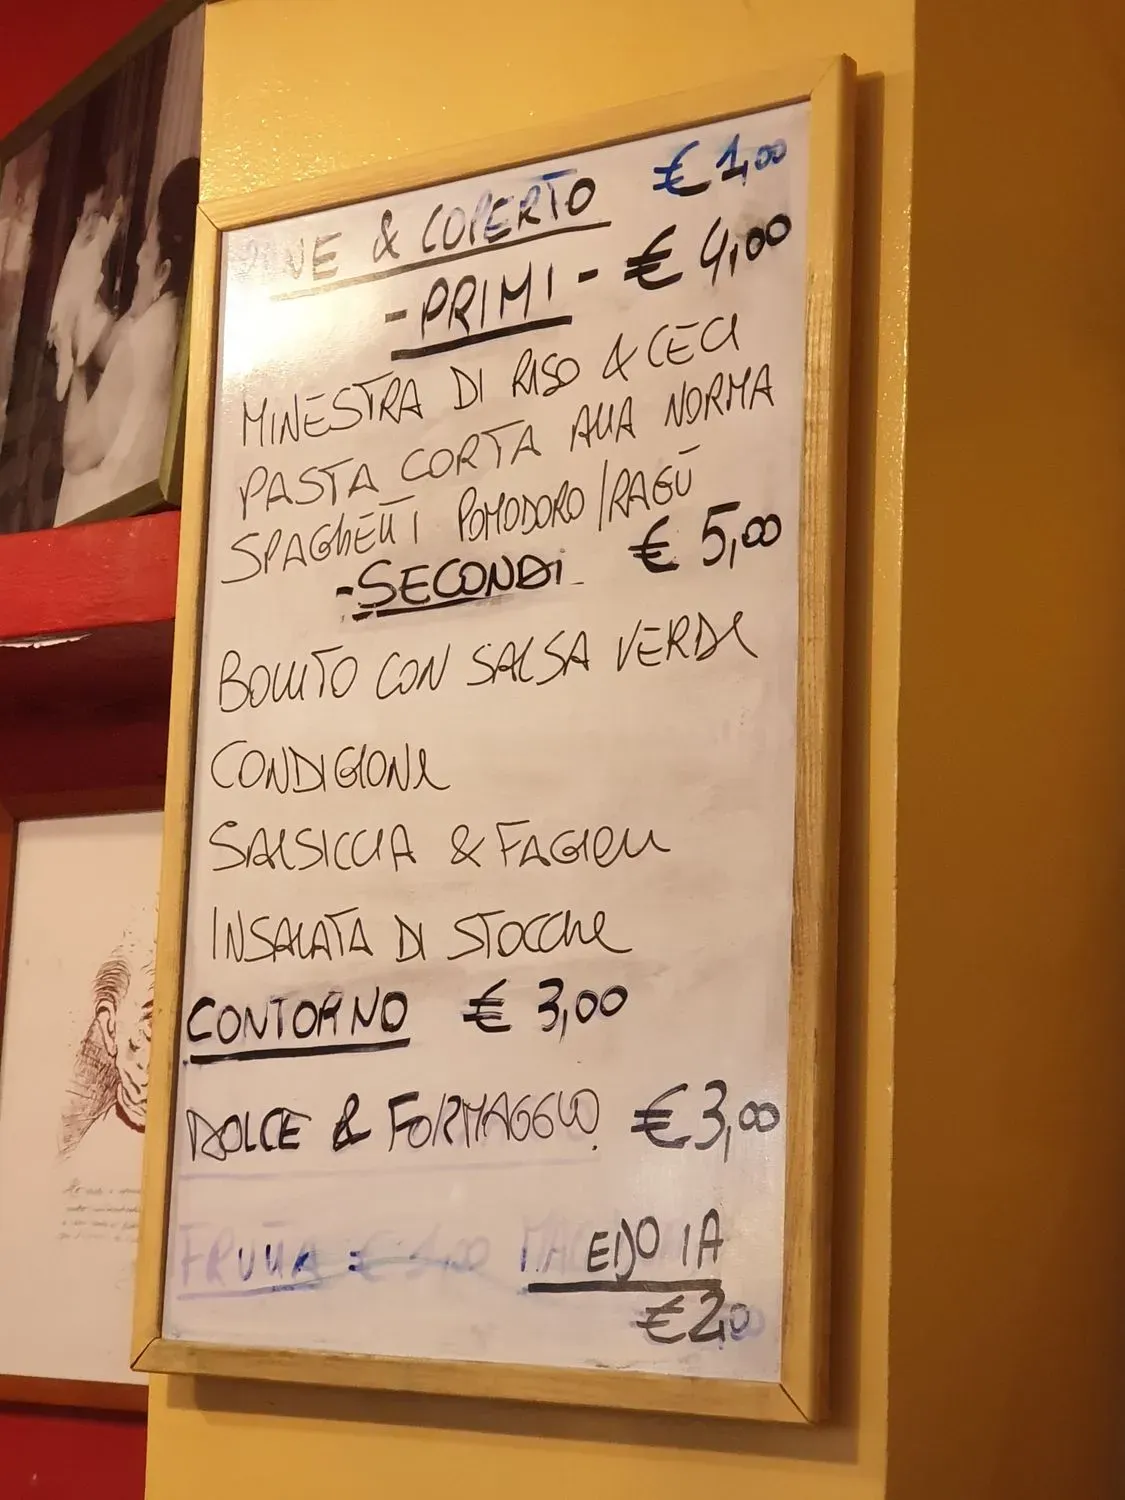 PANE & COPERTO € 1,00
- PRIMI - € 4,00
MINESTRA DI RISO & CECI
PASTA CORTA ALLA NORMA
SPAGHETTI POMODORO/RAGÙ
- SECONDI - € 5,00
BOLLITO CON SALSA VERDE
CONDIGIONE
SALSICCIA & FAGIOLI
INSALATA DI STOCCHE
CONTORNO € 3,00
DOLCE & FORMAGGIO € 3,00
FRUTTA = € 3,00 MACEDONIA
€ 2,00